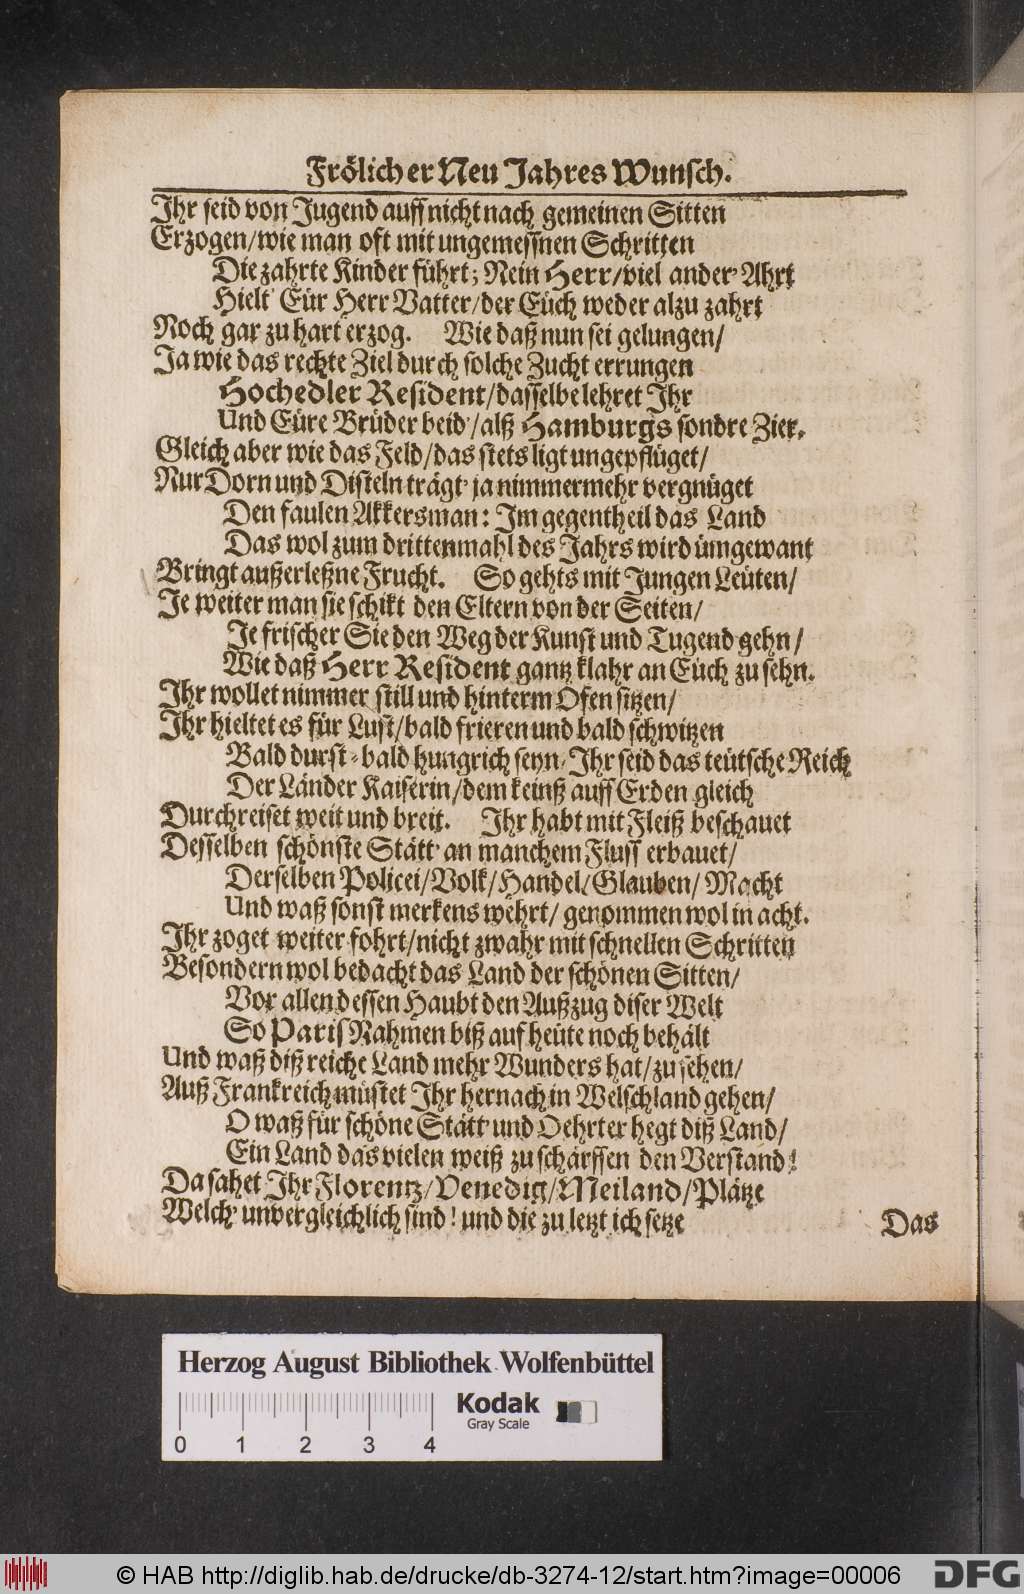 Frölicher Neu Jahres Wunsch.
Ihr seid von Jugend auff nicht nach gemeinen Sitten
Erzogen/wie man oft mit ungemeßnen Schritten
Die zahrte Kinder führt; Nein Herr/viel ander' Ahrt
Hielt Eür Herr Vatter/der Eüch weder alzu zahrt
Noch gar zu hart erzog. Wie daß nun sei gelungen/
Ja wie das rechte Ziel durch solche Zucht errungen
Hochedler Resident/dasselbe lehret Ihr
Und Eüre Brüder beid'/alß Hamburgs sondre Zier.
Gleich aber wie das Feld/das stets ligt ungepflüget/
Nur Dorn und Disteln trägt' ja nimmermehr vergnüget
Den faulen Akkersman: Im gegentheil das Land
Das wol zum drittenmahl des Jahrs wird ümgewant
Bringt außerleßne Frucht. So gehts mit Jungen Leüten/
Je weiter man sie schikt den Eltern von der Seiten/
Je frischer Sie den Weg der Kunst und Tugend gehn/
Wie daß Herr Resident gantz klahr an Eüch zu sehn.
Ihr wollet nimmer still und hinterm Ofen sitzen/
Ihr hieltet es für Lust/bald frieren und bald schwitzen
Bald durst-bald hungrich seyn, Ihr seid das teütsche Reich
Der Länder Kaiserin/dem keinß auff Erden gleich
Durchreiset weit und breit. Ihr habt mit Fleiß beschauet
Desselben schönste Stätt' an manchem Fluss erbauet/
Derselben Policei/Volk/Handel/Glauben/Macht
Und waß sonst merkens wehrt/genommen wol in acht.
Ihr zoget weiter fohrt/nicht zwahr mit schnellen Schritten
Besondern wol bedacht das Land der schönen Sitten/
Vor allen dessen Haubt den Außzug diser Welt
So Paris Nahmen biß auf heüte noch behält
Und waß diß reiche Land mehr Wunders hat/zu sehen/
Auß Frankreich müstet Ihr hernach in Welschland gehen/
O waß für schöne Stätt' und Oehrter hegt diß Land/
Ein Land das vielen weiß zu schärffen den Verstand!
Da sahet Ihr Florentz/Venedig/Meiland/Plätze
Welch' unvergleichlich sind! und die zu letzt ich setze
Das
Herzog August Bibliothek Wolfenbüttel
Kodak
Gray Scale
0 1 2 3 4
© HAB http://diglib.hab.de/drucke/db-3274-12/start.htm?image=00006
DFG